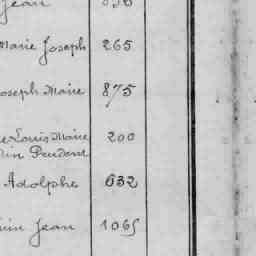 Jean
Marie Joseph 265
Joseph Marie 875
Louis Marie 200
Prudent
Adolphe 632
Jean 1065